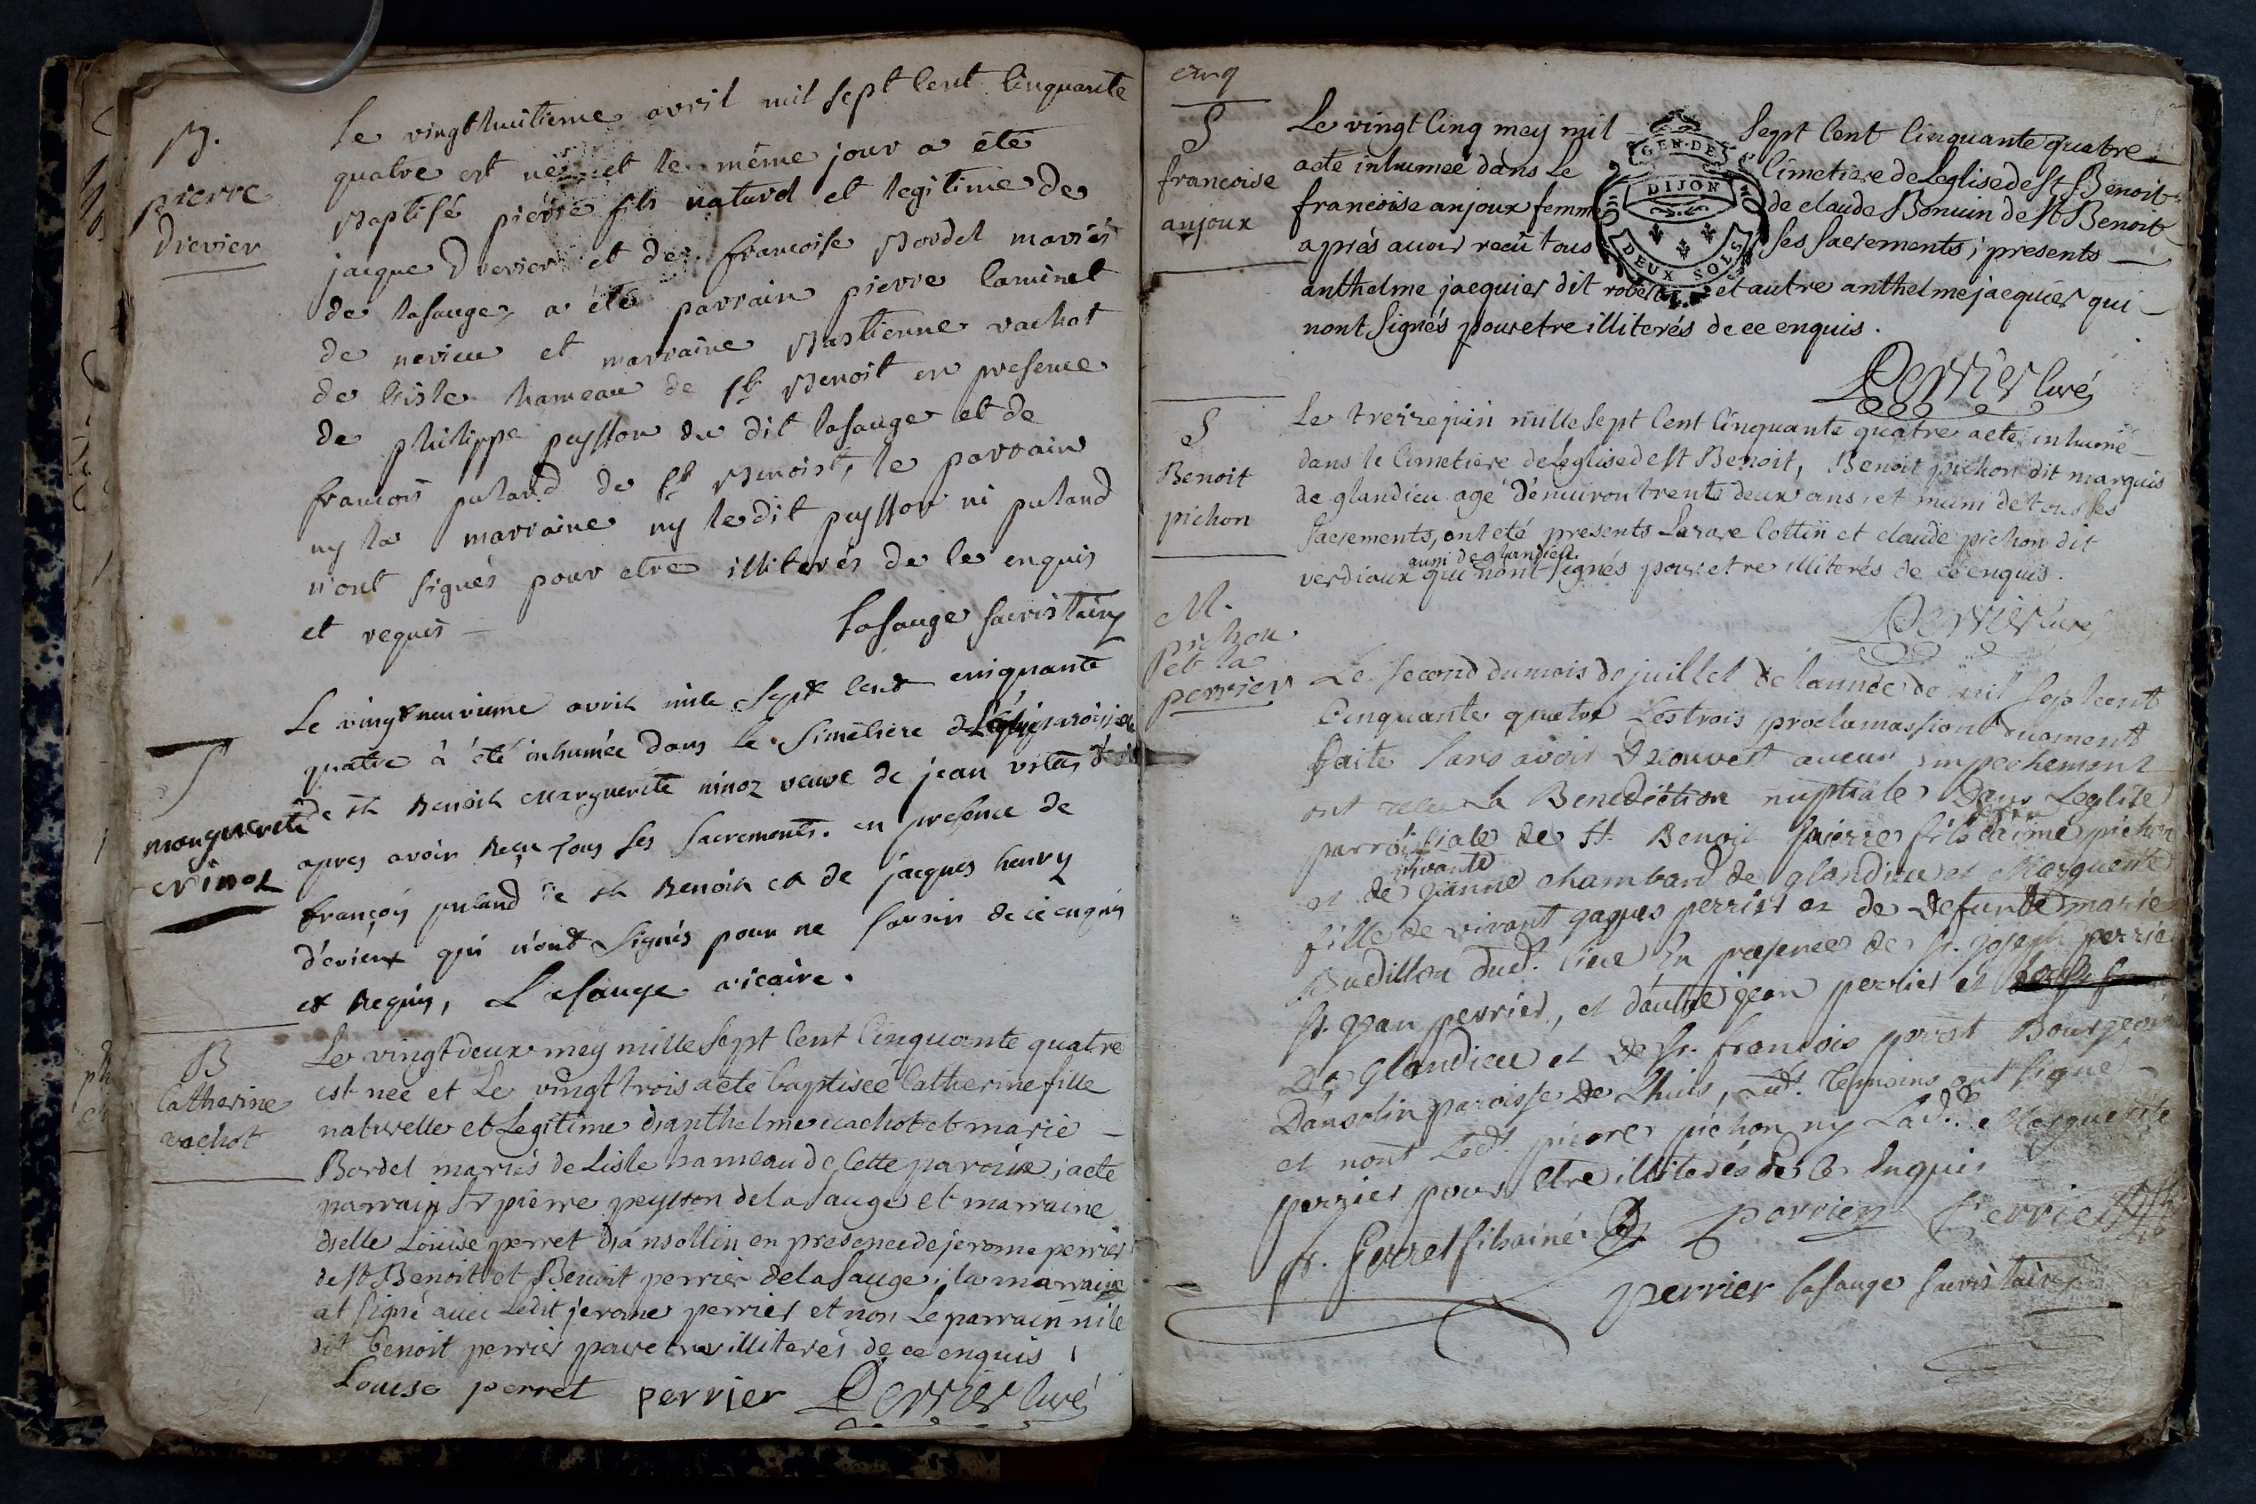 B.
pierre
Drevier
Le vingt huitieme avril mil sept cent cinquante
quatre est né et le même jour a été
Baptisé pierre fils naturel et legitime de
jacque Drevier et de francoise Bordel mariés
de lasauge, a été parrain pierre caminet
de nerieu et marraine Bastienne vachot
de liste hameau de st Benoit en presence
de philippe peysson du dit lasauge et de
francois puland de st Benoist, le parrain
ny la marraine ny le dit peysson ni puland
n'ont signés pour etre illiterés de ce enquis
et requis
Lasauge sacristain
S
marguerite
ninoz
Le vingt neuvieme avril mile sept cent cinquante
quatre à été inhumée dans le simetiere de
de st Benoit marguerite ninoz veuve de jean
apres avoir reçu tous ses sacrements. en presence de
françois puland de st Benoit et de jacques henry
d'evieux qui n'ont signés pour ne savoir de ce enquis
et requis, Lasauge vicaire.
B
Catherine
vachot
Le vingt deux mey mille sept cent cinquante quatre
est neé et le vingt trois aeté baptiseé Catherine fille
naturelle et Legitime d'anthelme vachot et marie
Bordel mariés de Lisle hameau de cette paroisse; aeté
parrain Sr pierre peysson delasauge et marraine
dselle Louise perret d'ansollin en presence de jerome perrier
de st Benoit et Benoit perrier delasauge; la marraine
at signé avec Ledit jerome perrier et non Le parrain ni le
dit benoit perrier pour etre illiterés de ce enquis
Louise perret perrier Perrier curé
cinq
S
francoise
anjoux
Le vingt cinq mey mil sept cent cinquante quatre
aeté inhumeé dans Le cimetiere de Leglise de st Benoit
francoise anjoux femme de claude Bonuin de st Benoit
aprés avoir recu tous ses sacrements; presents
anthelme jacquier dit robert et autre anthelme jacquier qui
nont signés pour etre illiterés de ce enquis.
GEN. DE
DIJON
DEUX SOLS
Perrier curé
S
Benoit
pichon
Le treize juin mille sept cent cinquante quatre aeté inhumé
dans le cimetiere de Leglise de st Benoit, Benoit pichon dit marquis
de glandieu agé d'environ trente deux ans, et muni de tous ses
sacrements, ont eté presents Lazare Cottin et claude pichon dit
aussi de glandieu
verdiaux qui nont signés pour etre illiterés de ce enquis.
Perrier curé
M.
pichon
et la
perrier
Le second du mois de juillet de lannée de mil sept cent
Cinquante quatre Les trois proclamassiont duament
faite sans avoir decouvert aucun impechement
ont recu La Benediction nuptiale Dans Leglise
parroissiale de st Benoit pierre fils daimé pichon
vivante
et de jeanne chambard de glandieu et Marguerite
fille de vivant jaques perrier et de defunte marie
Budillon dud. lieu En presence de sr. joseph perrier
sr. jean perrier, et d'autre jean perrier et
De Glandieu et de sr. francois perret Bourgeois
Dansolin paroisse de Lhuis, Lesd. temoins ont signé
et nont Led. pierre pichon ny Lad. Marguerite
perrier pour etre illiterés de ce Enquis
fr. Perret fils ainé perrier Perrier
perrier Lasauge sacristain